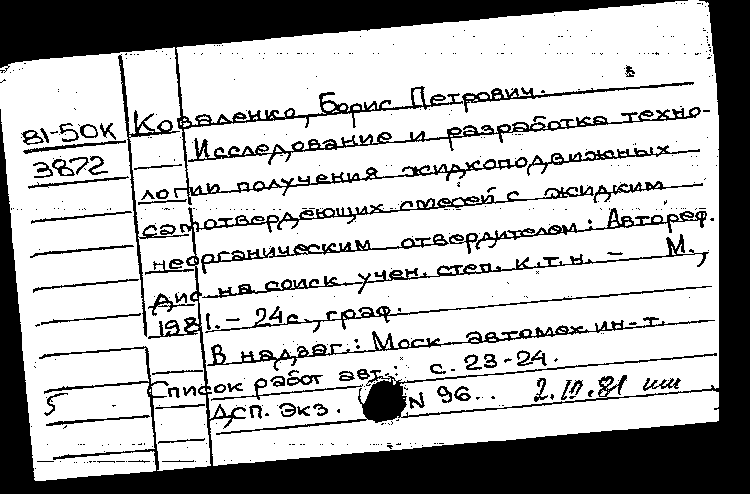 81-50К Коваленко, Борис Петрович.
3872 Исследование и разработка техно-
логии получения жидкоподвижных
самотвердеющих смесей с жидким
неорганическим отвердителем: Автореф.
дис на соиск. учен. степ. к.т.н. - М.,
1981. - 24с., граф.
В надзаг.: Моск. автомех. ин-т.
Список работ авт.: с. 23-24.
5 ДСП. Экз. N 96. 2.10.81